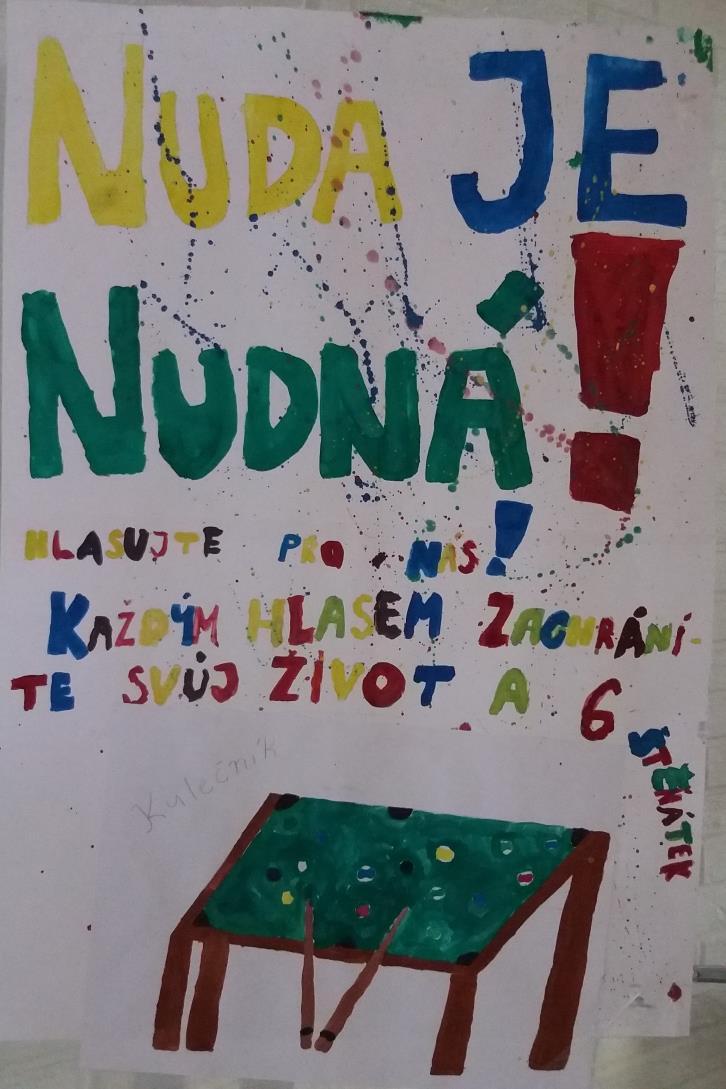 NUDA JE
NUDNÁ!
HLASUJTE PRO NÁS!
KAŽDÝM HLASEM ZACHRÁNÍ-
TE SVŮJ ŽIVOT A 6
ŠTĚŇÁTEK
Kulečník